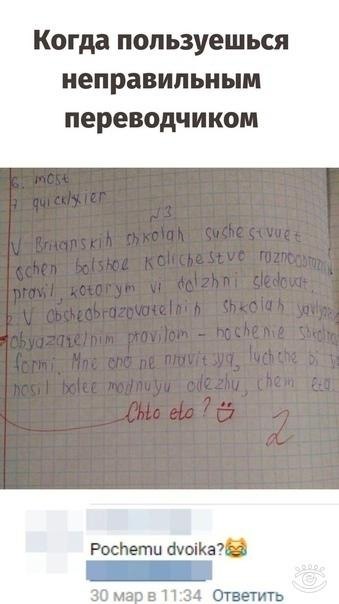 Когда пользуешься
неправильным
переводчиком
6. most
7. quicklyier
№3
V Britanskih shkolah sushestvuet
ochen bolshoe kolichestvo raznoobrazn
pravil, kotorym vi dolzhni sledovat.
V obsheobrazovatelnih shkolah yavlyae
obyazatelnim pravilom - noshenie shkolno
formi. Mne ono ne nravitsya, luchche bi ya
nosil bolee modnuyu odezhu, chem eta.
Chto eto?
2
Pochemu dvoika?😹
30 мар в 11:34 Ответить